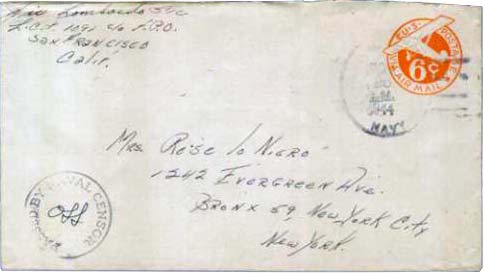 Lombardo S1/c
L.C.T. 1091 c/o F.P.O.
San Francisco
Calif.
U.S. POSTAGE
6¢
AIR MAIL
1944
NAVY
Mrs. Rose Lo Nigro
1242 Evergreen Ave.
Bronx 59, New York City
New York.
PASSED BY NAVAL CENSOR